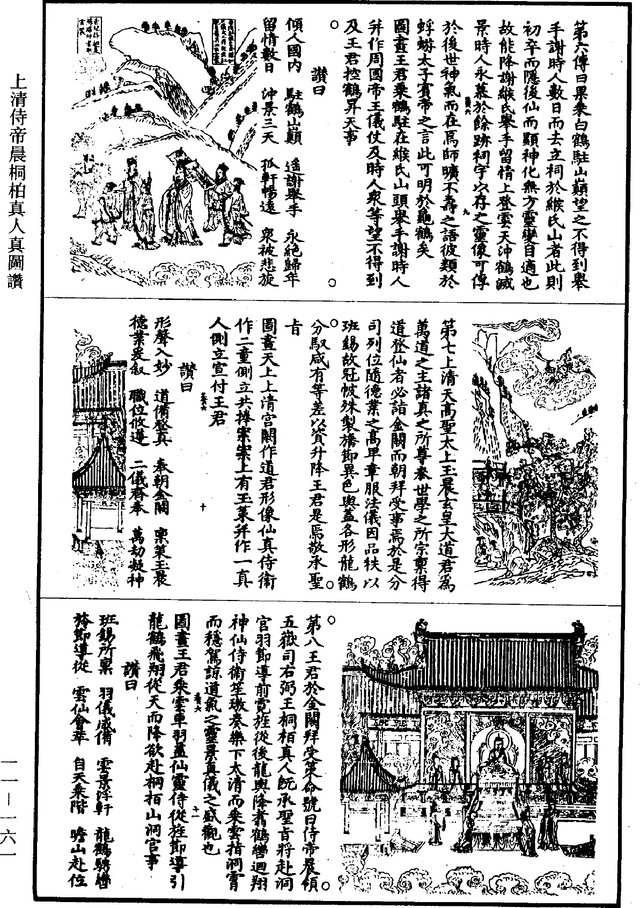 上清侍帝晨桐柏真人真圖讚
第六傳曰果乘白鶴駐山巔望之不得到舉
手謝時人數日而去立祠於緱氏山者此則
初卒而隱後仙而顯神化無方靈變自適也
故能降謝緱氏舉手留情上登雲天沖鶴滅
景時人永慕於餘跡祠宇以存之靈像可傳
於後世神氣而在焉師曠不壽之語彼類於
蜉蝣太子賓帝之言此可明於龜鶴矣
圖畫王君乘鶴駐在緱氏山頭舉手謝時人
并作周國帝王儀仗及時人衆等望不得到
及王君控鶴昇天事
讚曰
傾人國內 駐鶴山巔 遥謝舉手 永絕歸年
留情數日 沖景三天 孤軒暢遠 衆被悲旋
第七上清天高聖太上玉晨玄皇大道君為
萬道之主諸真之所尊奉世學之所宗稟得
道登仙者必詣金闕而朝拜受事焉於是分
司列位隨德業之高卑章服法儀因品秩以
班錫故冠帔殊製旛節異色輿蓋各形龍鶴
分馭咸有等差以資升降王君是焉敬承聖
旨
圖畫天上上清宮闕作道君形像仙真侍衛
作二童側立共捧案案上有玉策并作一真
人側立宣付王君
讚曰
形聲入妙 道備登真 奉朝金闕 稟策玉晨
德業爰叙 職位攸遵 二儀齊奉 萬劫凝神
十
第八王君於金闕拜受策命號曰侍帝晨領
五嶽司右弼王桐柏真人既承聖旨將赴洞
宫羽節導前霓旌從後龍輿降翥鶴轡迴翔
神仙侍衛笙璈奏樂下太清而乘雲指洞霄
而穩駕諒道氣之靈景真儀之盛觀也
圖畫王君乘雲車羽蓋仙靈侍從旌節導引
龍鶴飛翔從天而降欲赴桐栢山洞宫事
讚曰
班錫所稟 羽儀咸備 雲景降軒 龍鶴騁轡
旛節導從 雲仙會萃 自天乘階 瞻山赴位
十一
一一—一六一